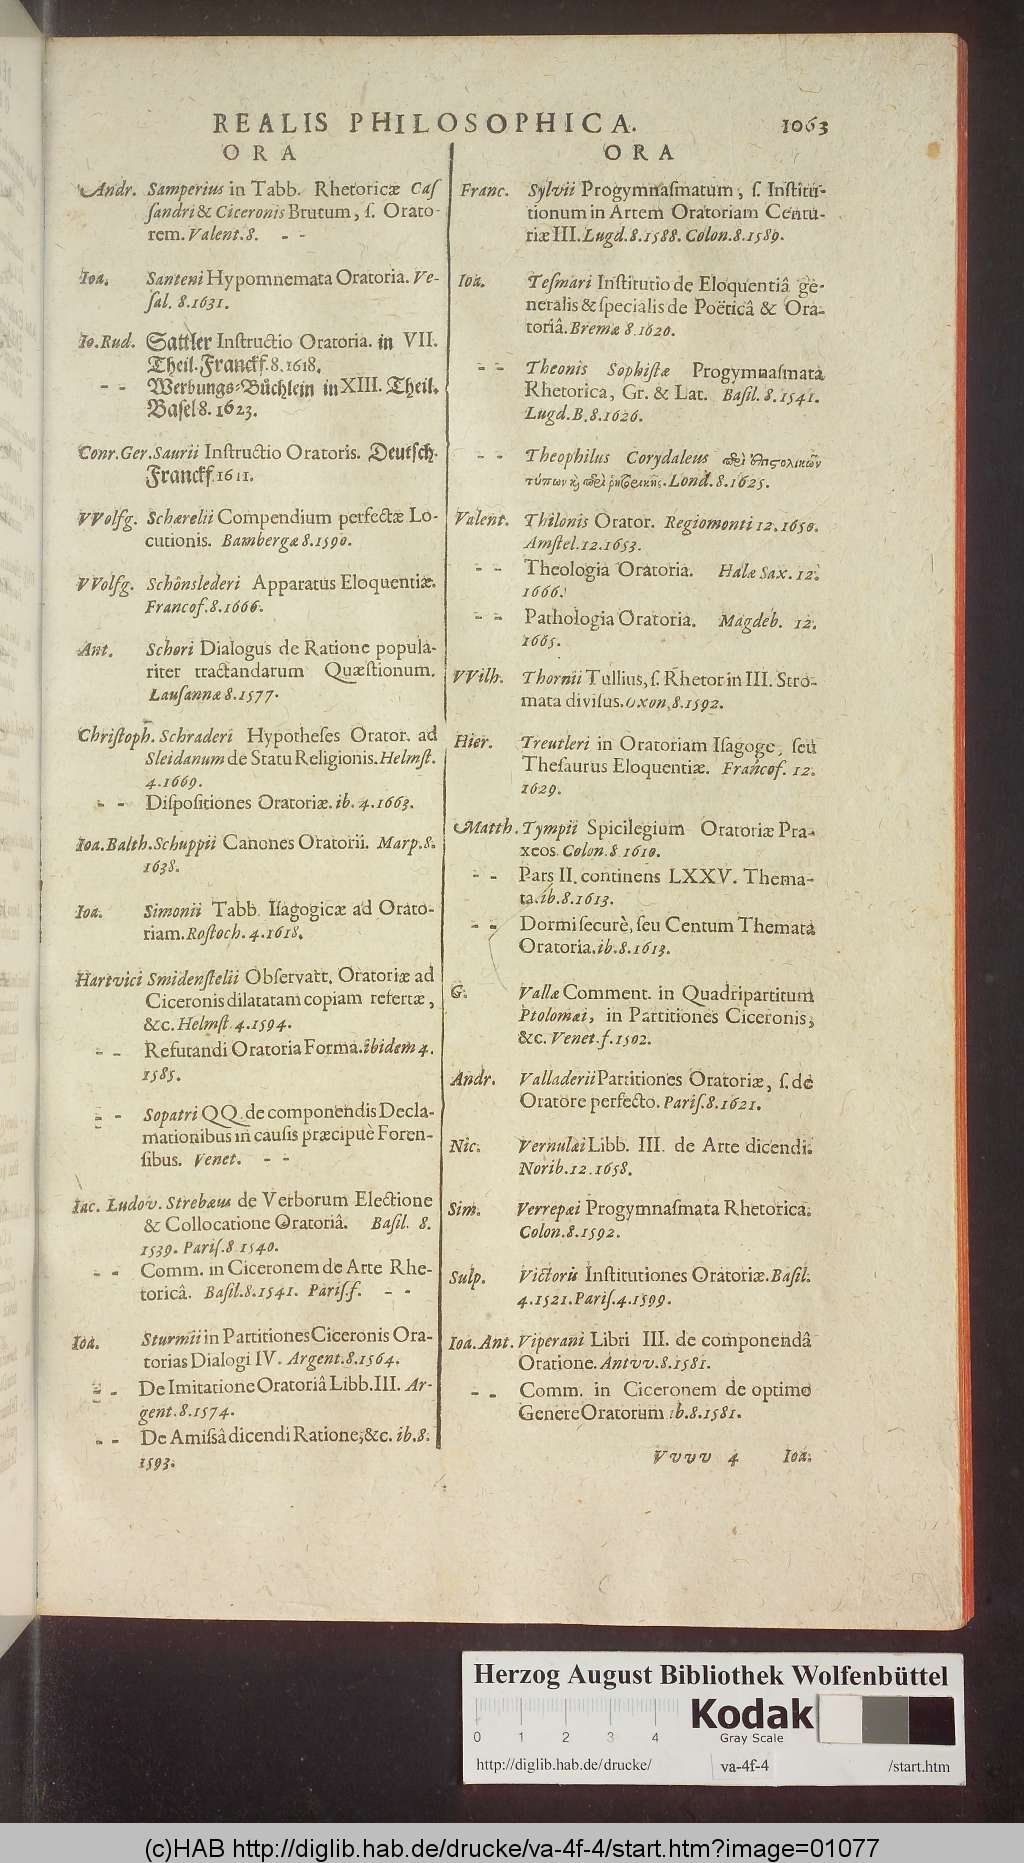 REALIS PHILOSOPHICA. 1063
ORA
Andr. Samperius in Tabb. Rhetoricæ Caſ
ſandri & Ciceronis Brutum, ſ. Orato-
rem. Valent. 8. - -
Ioa. Santeni Hypomnemata Oratoria. Ve-
ſal. 8. 1631.
Io. Rud. Sattler Inſtructio Oratoria. in VII.
Theil. Franckf. 8. 1618.
- - Werbungs-Büchlein in XIII. Theil.
Baſel 8. 1623.
Conr. Ger. Saurii Inſtructio Oratoris. Deutſch.
Franckf. 1611.
VVolfg. Schærelii Compendium perfectæ Lo-
cutionis. Bambergæ 8. 1590.
VVolfg. Schönslederi Apparatus Eloquentiæ.
Francof. 8. 1666.
Ant. Schori Dialogus de Ratione popula-
riter tractandarum Quæſtionum.
Lauſannæ 8. 1577.
Chriſtoph. Schraderi Hypotheſes Orator. ad
Sleidanum de Statu Religionis. Helmſt.
4. 1669.
- - Diſpoſitiones Oratoriæ. ib. 4. 1663.
Ioa. Balth. Schuppii Canones Oratorii. Marp. 8.
1638.
Ioa. Simonii Tabb. Iſagogicæ ad Orato-
riam. Roſtoch. 4. 1618.
Hartvici Smidenſtelii Obſervatt. Oratoriæ ad
Ciceronis dilatatam copiam refertæ,
&c. Helmſt. 4. 1594.
- - Refutandi Oratoria Forma. ibidem 4.
1585.
- - Sopatri QQ. de componendis Decla-
mationibus in cauſis præcipuè Foren-
ſibus. Venet. - -
Iac. Ludov. Strebæus de Verborum Electione
& Collocatione Oratoriâ. Baſil. 8.
1539. Pariſ. 8 1540.
- - Comm. in Ciceronem de Arte Rhe-
toricâ. Baſil. 8. 1541. Pariſ. f. - -
Ioa. Sturmii in Partitiones Ciceronis Ora-
torias Dialogi IV. Argent. 8. 1564.
- - De Imitatione Oratoriâ Libb. III. Ar-
gent. 8. 1574.
- - De Amiſsâ dicendi Ratione, &c. ib. 8.
1593.
ORA
Franc. Sylvii Progymnaſmatum, ſ. Inſtitu-
tionum in Artem Oratoriam Centu-
riæ III. Lugd. 8. 1588. Colon. 8. 1589.
Ioa. Teſmari Inſtitutio de Eloquentiâ ge-
neralis & ſpecialis de Poëticâ & Ora-
toriâ. Bremæ 8. 1620.
- - Theonis Sophiſtæ Progymnaſmata
Rhetorica, Gr. & Lat. Baſil. 8. 1541.
Lugd. B. 8. 1626.
- - Theophilus Corydaleus περὶ ἐπιστολικῶν
τύπων κ̀ περὶ ῥητορικῆς. Lond. 8. 1625.
Valent. Thilonis Orator. Regiomonti 12. 1650.
Amſtel. 12. 1653.
- - Theologia Oratoria. Halæ Sax. 12.
1666.
- - Pathologia Oratoria. Magdeb. 12.
1665.
VVilh. Thornii Tullius, ſ. Rhetor in III. Stro-
mata diviſus. Oxon. 8. 1592.
Hier. Treutleri in Oratoriam Iſagoge, ſeu
Theſaurus Eloquentiæ. Francof. 12.
1629.
Matth. Tympii Spicilegium Oratoriæ Pra-
xeos. Colon. 8 1610.
- - Pars II. continens LXXV. Thema-
ta. ib. 8. 1613.
- - Dormi ſecurè, ſeu Centum Themata
Oratoria. ib. 8. 1613.
G. Vallæ Comment. in Quadripartitum
Ptolomæi, in Partitiones Ciceronis,
&c. Venet. f. 1502.
Andr. Valladerii Partitiones Oratoriæ, ſ. de
Oratore perfecto. Pariſ. 8. 1621.
Nic. Vernulæi Libb. III. de Arte dicendi.
Norib. 12. 1658.
Sim. Verrepæi Progymnaſmata Rhetorica.
Colon. 8. 1592.
Sulp. Victoris Inſtitutiones Oratoriæ. Baſil.
4. 1521. Pariſ. 4. 1599.
Ioa. Ant. Viperani Libri III. de componendâ
Oratione. Antvv. 8. 1581.
- - Comm. in Ciceronem de optimo
Genere Oratorum ib. 8. 1581.
Vvvv 4 Ioa.
Herzog August Bibliothek Wolfenbüttel
0 1 2 3 4
Kodak
Gray Scale
http://diglib.hab.de/drucke/ va-4f-4 /start.htm
(c)HAB http://diglib.hab.de/drucke/va-4f-4/start.htm?image=01077